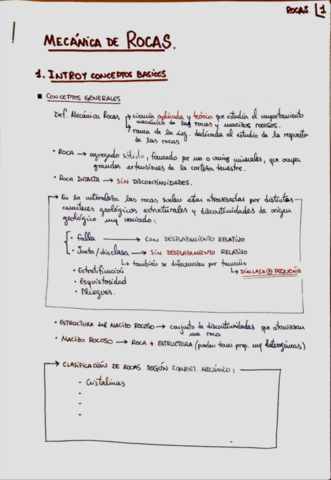 ROCAS 1
MECÁNICA DE ROCAS.
1. INTRO Y CONCEPTOS BASICOS
■ CONCEPTOS GENERALES
Def. Mecánica Rocas → ciencia aplicada y teórica que estudia el comportamiento
mecánico de las rocas y macizos rocosos.
→ rama de la ing. dedicada al estudio de la respuesta
de las rocas
• ROCA → agregado sólido, formado por uno o varios minerales, que ocupa
grandes extensiones de la corteza terrestre.
• ROCA INTACTA → SIN DISCONTINUIDADES.
→ En la naturaleza las rocas suelen estar atravesadas por distintos
caracteres geológicos estructurales y discontinuidades de origen
geológico muy variado:
• Falla → CON DESPLAZAMIENTO RELATIVO
• Junta/diaclasa → SIN DESPLAZAMIENTO RELATIVO
→ también se diferencian por tamaño
→ DIACLASA PEQUEÑA
• Estratificación
• Esquistosidad
• Pliegues.
• ESTRUCTURA DEL MACIZO ROCOSO → conjunto de discontinuidades que atraviesan
una roca
• MACIZO ROCOSO → ROCA + ESTRUCTURA (pueden tener prop. muy heterogéneas)
→ CLASIFICACIÓN DE ROCAS SEGÚN COMPORT. MECÁNICO:
- Cristalinas
-
-
-